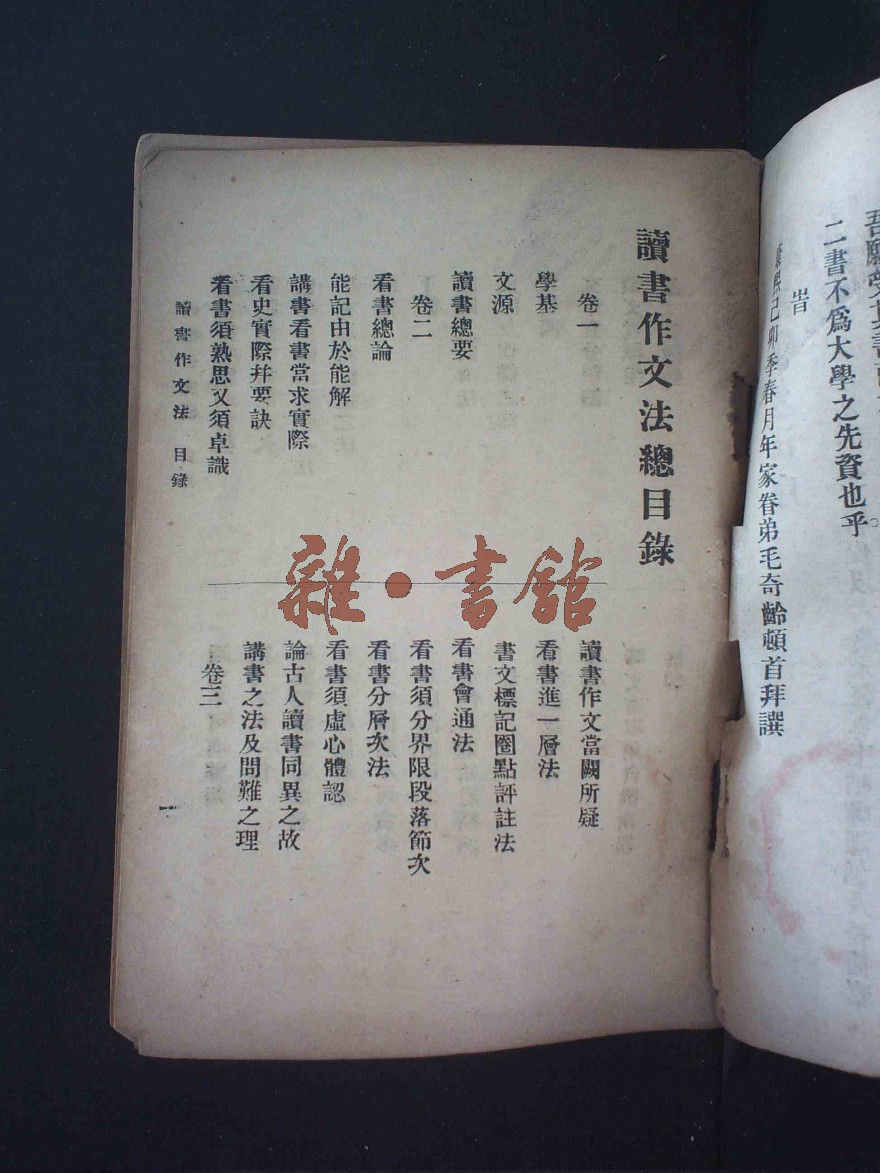 二書不爲大學之先資也乎。
旹
康熙己卯季春月年家眷弟毛奇齡頓首拜譔
讀書作文法總目錄
卷一
學基
文源
讀書總要
卷二
看書總論
能記由於能解
講書看書當求實際
看史實際幷要訣
看書須熟思又須卓識
讀書作文當闕所疑
看書進一層法
書文標記圈點評註法
看書會通法
看書須分界限段落節次
看書分層次法
看書須虛心體認
論古人讀書同異之故
講書之法及問難之理
卷三
讀書作文法 目錄
一
雜·書館